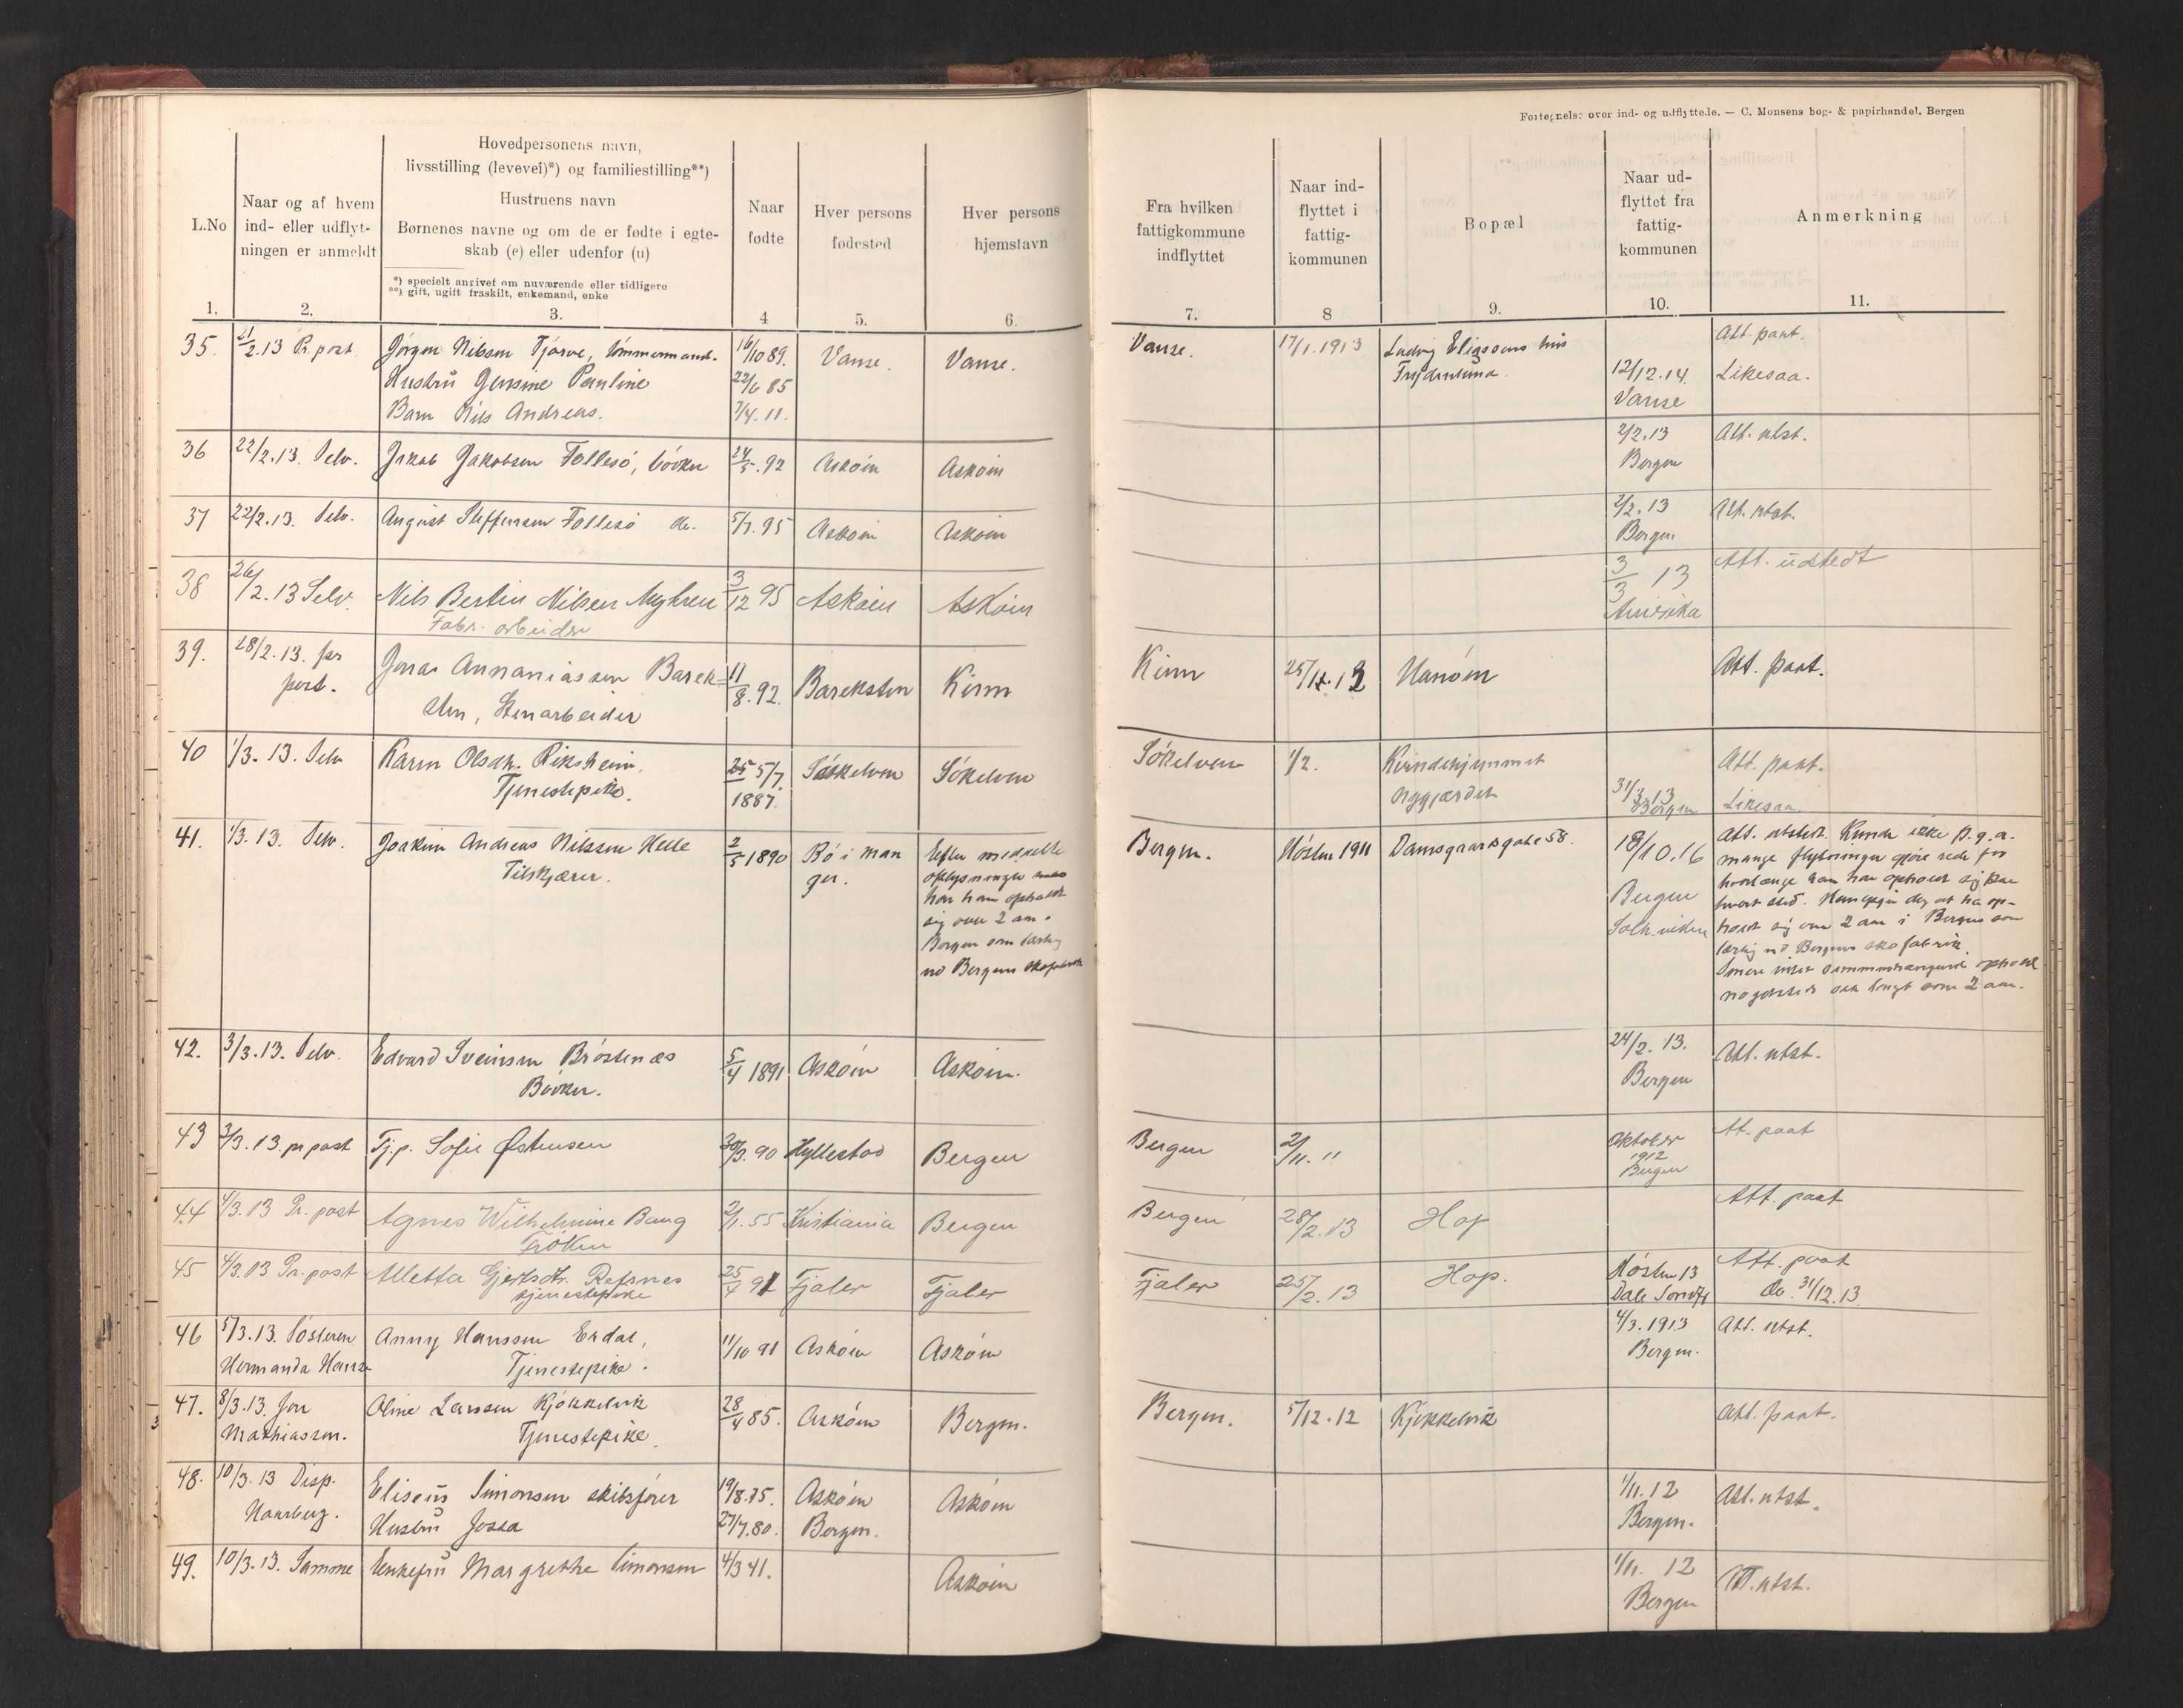 Fortegnelse over ind- og udflyttede. — C. Monsens bog- & papirhandel, Bergen
L.No
Naar og af hvem
ind- eller udflyt-
ningen er anmeldt
Hovedpersonens navn,
livsstilling (levevei)*) og familiestilling**)
Hustruens navn
Børnenes navne og om de er fødte i egte-
skab (e) eller udenfor (u)
*) specielt angivet om nuværende eller tidligere
**) gift, ugift fraskilt, enkemand, enke
Naar
fødte
Hver persons
fødested
Hver persons
hjemstavn
Fra hvilken
fattigkommune
indflyttet
Naar ind-
flyttet i
fattig-
kommunen
Bopæl
Naar ud-
flyttet fra
fattig-
kommunen
Anmerkning
1. 2. 3. 4 5. 6. 7. 8 9. 10. 11.
35. 21/2.13 Pr. post Jørgen Nilssen Tjørve, tømmermand. 16/10 89. Vanse. Vanse. Vanse. 17/1.1913 Ludvig Eliassens hus Att. paat.
Hustru Gensine Pauline 22/6 85 12/12.14. Likesaa.
Barn Nils Andreas. 7/4.11. Vanse
36 22/2.13. Selv. Jakob Jakobsen Follesø, bøkker 24/5.92 Askøin Askøin 2/2.13 Att. utst.
Bergen
37 22/2.13. Selv. August Steffensen Follesø do. 5/7.95 Askøin Askøin 2/2.13 Att. utst.
Bergen
38 26/2.13 Selv. Nils Bertin Nilsen Myhren 3/12 95 Askøien Askøien 3/3 13 Att. udstedt
Fabr. arbeider Amerika
39. 28/2.13. per Jonas Annaniassen Barek- 11/8.92. Bareksten Kinn Kinn 25/11.12 Hanøen Att. paat.
post. sten, Stenarbeider
40 1/3.13. Selv Karen Olsdtr. Riksheim, 25 5/7. Søkkelven Søkelven Søkelven 1/2. Kvindehjemmet Att. paat.
Tjenestepike. 1887. Nygjærdet 31/3.13 Likesaa
Bergen
41. 1/3.13. Selv. Joakim Andreas Nilssen Helle 2/5 1890 Bø i Man Efter meddelte Bergen. Høsten 1911 Damsgaardsgate 58. 18/10.16 Att. utstedt. Kunde ikke p.g.a.
Tilskjærer. ger. oplysninger mange flytninger gjøre rede for
har han opholdt hvorlænge han har opholdt sig paa
sig over 2 aar i Bergen hvert sted. Han opgir dog at ha op-
Bergen som lærling Solh.viken holdt sig over 2 aar i Bergen som
ved Bergens skofabrik lærling v. Bergens skofabrik.
Senere intet sammenhængende ophold
nogetsteds saa langt som 2 aar.
42. 3/3.13. Selv. Edvard Sveinsen Brøstenæs 5/4 1891 Askøin Askøin. 24/2.13. Att. utst.
Bøkker. Bergen
43 3/3.13. pr post Tj.p. Sofie Østensen 30/3.90 Hyllestad Bergen Bergen 2/11.11 Oktober Att. paat
1912
Bergen
44 4/3.13 Pr. post Agnes Wilhelmine Bang 2/1.55 Kristiania Bergen Bergen 28/2.13 Hop Att. paat
Frøken
45 4/3.13 Pr. post Alletta Gjertsdtr. Refsnes 25/4 91 Fjaler Fjaler Fjaler 25/2.13 Hop. Høsten 13 Att. paat
tjenestepike Dale Søndfj do. 31/12.13.
46 5/3.13. Søsteren Anny Hanssen Erdal, 11/10 91 Askøin Askøin 4/3.1913 Att. utst.
Hermanda Hansen Tjenestepike. Bergen.
47. 8/3.13. Jon Oline Larssen Kjøkkelvik 28/4 85. Askøin Bergen. Bergen. 5/12.12 Kjøkkelvik Att. paat.
Mathiassen. Tjenestepike.
48. 10/3.13 Disp. Eliseus Simonsen skibsfører 19/8.75. Askøin Askøin 1/11.12 Att. utst.
Haarberg. Hustru Jossa 27/7.80. Bergen. Bergen.
49. 10/3.13. Samme Enkefru Margrethe Simonsen 4/3 41. Askøin 1/11.12 Att. utst.
Bergen